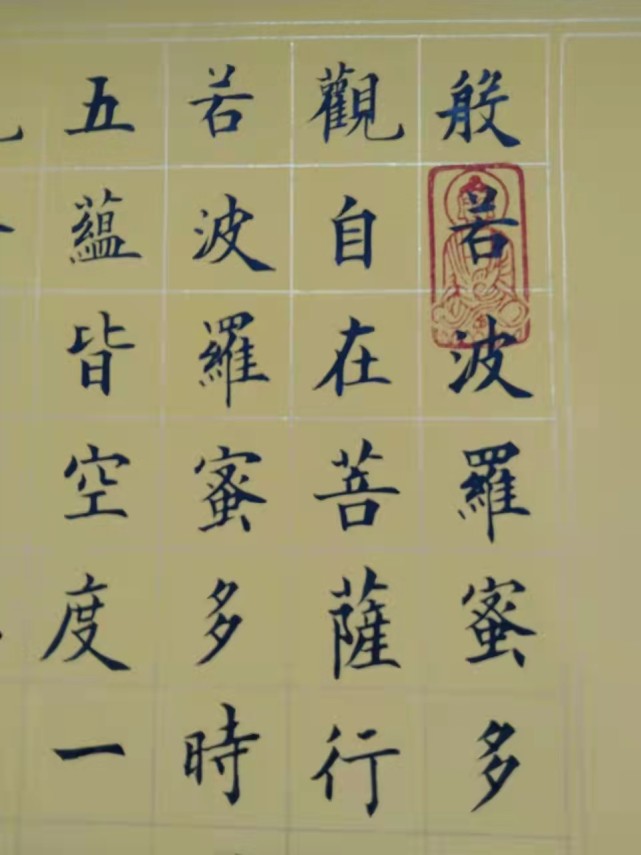 般若波羅蜜多
觀自在菩薩行
若波羅蜜多時
五蘊皆空度一